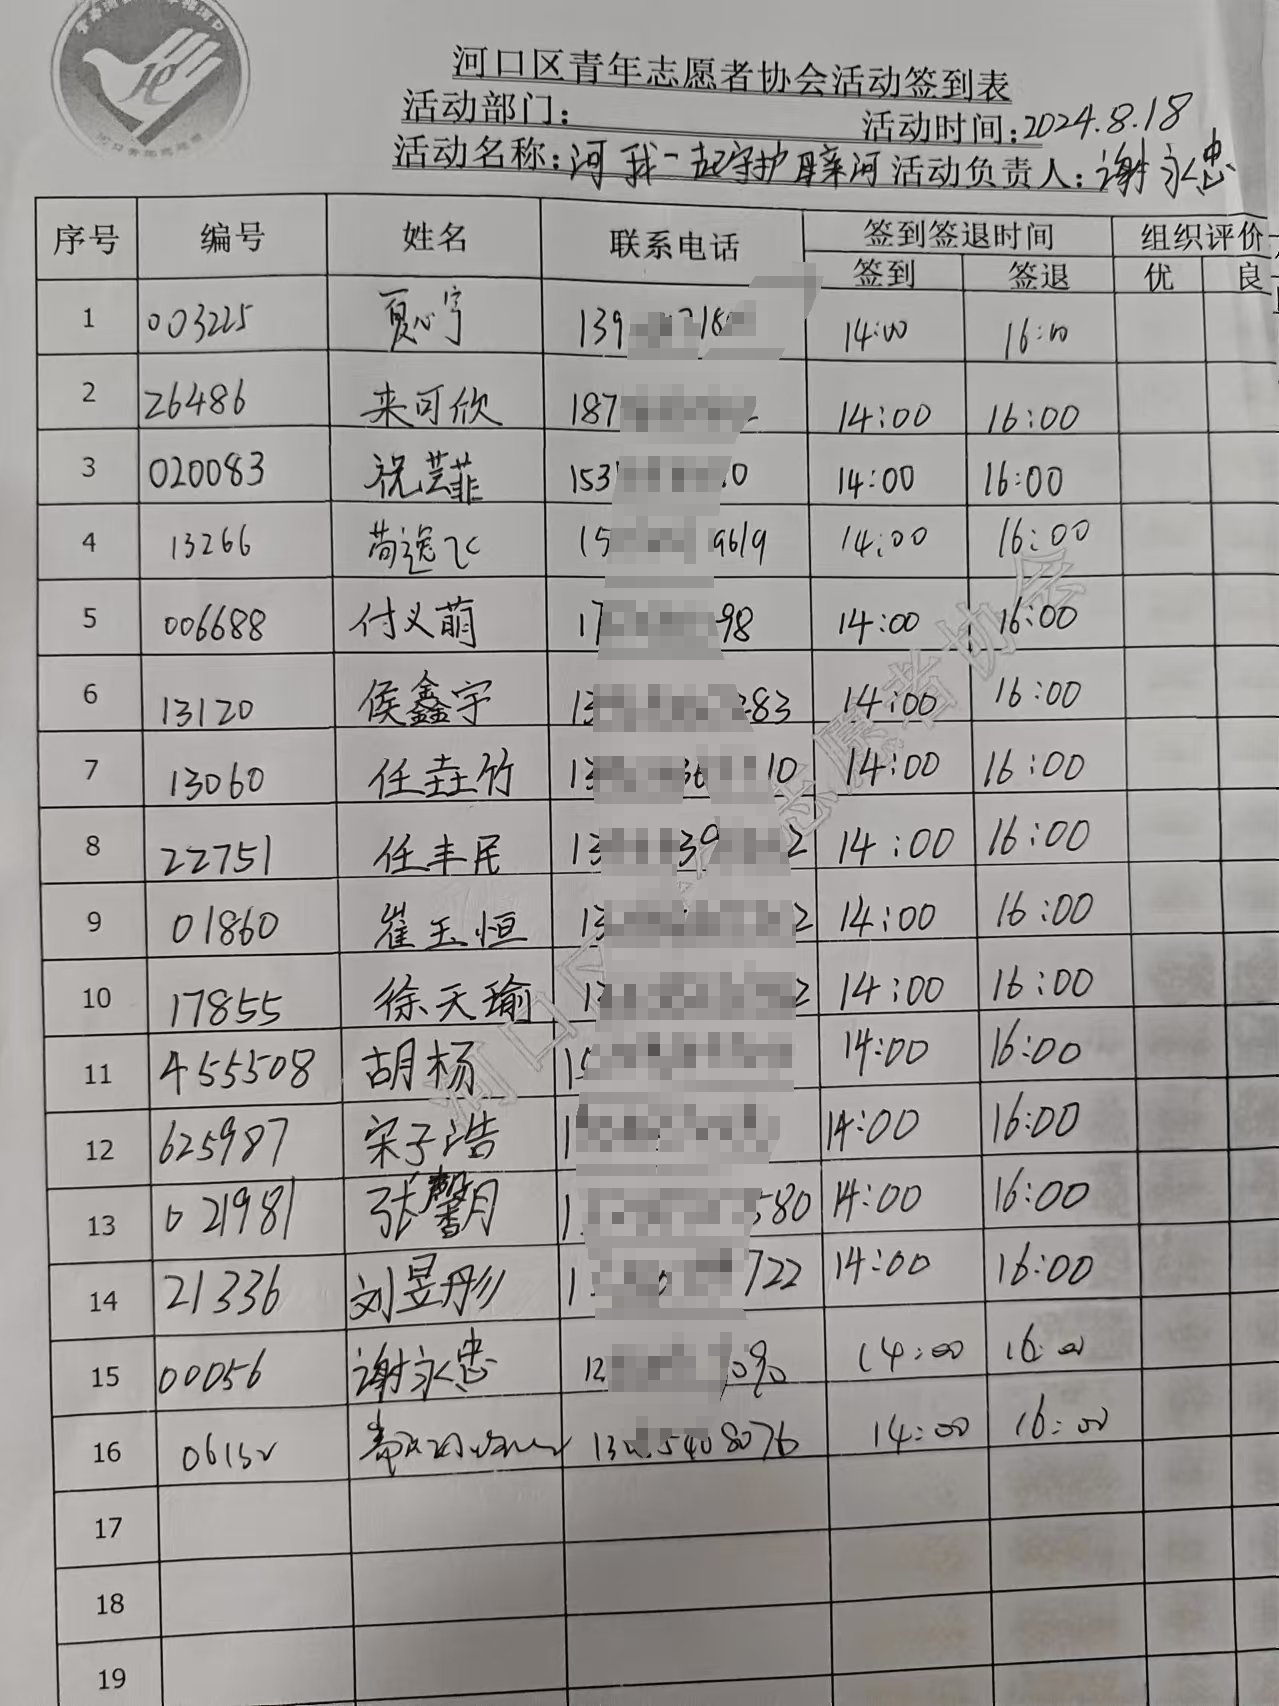 河口区青年志愿者协会活动签到表
活动部门： 活动时间：2024.8.18
活动名称：河我一起守护 河 活动负责人：谢永忠
序号 编号 姓名 联系电话 签到签退时间 组织评价
签到 签退 优 良
1 003225 夏心宇 139 14:00 16:00
2 26486 来可欣 187 14:00 16:00
3 020083 祝芸菲 153 0 14:00 16:00
4 13266 苟逸飞 15 9619 14:00 16:00
5 006688 付义萌 17 98 14:00 16:00
6 13120 侯鑫宇 13 83 14:00 16:00
7 13060 任垚竹 13 10 14:00 16:00
8 22751 任丰民 13 39 2 14:00 16:00
9 01860 崔玉恒 13 2 14:00 16:00
10 17855 徐天瑜 13 2 14:00 16:00
11 455508 胡杨 15 14:00 16:00
12 625987 宋子浩 1 14:00 16:00
13 021981 张馨月 1 580 14:00 16:00
14 21336 刘昱彤 1 722 14:00 16:00
15 00056 谢永忠 14:00 16:00
16 14:00 16:00
17
18
19
河口区 志愿者协会